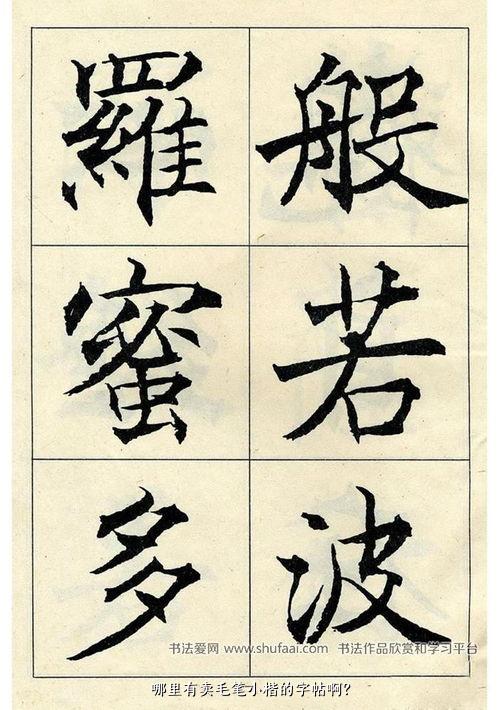 般若波
羅蜜多
书法爱网 www.shufaai.com 书法作品欣赏和学习平台
哪里有卖毛笔小楷的字帖啊?